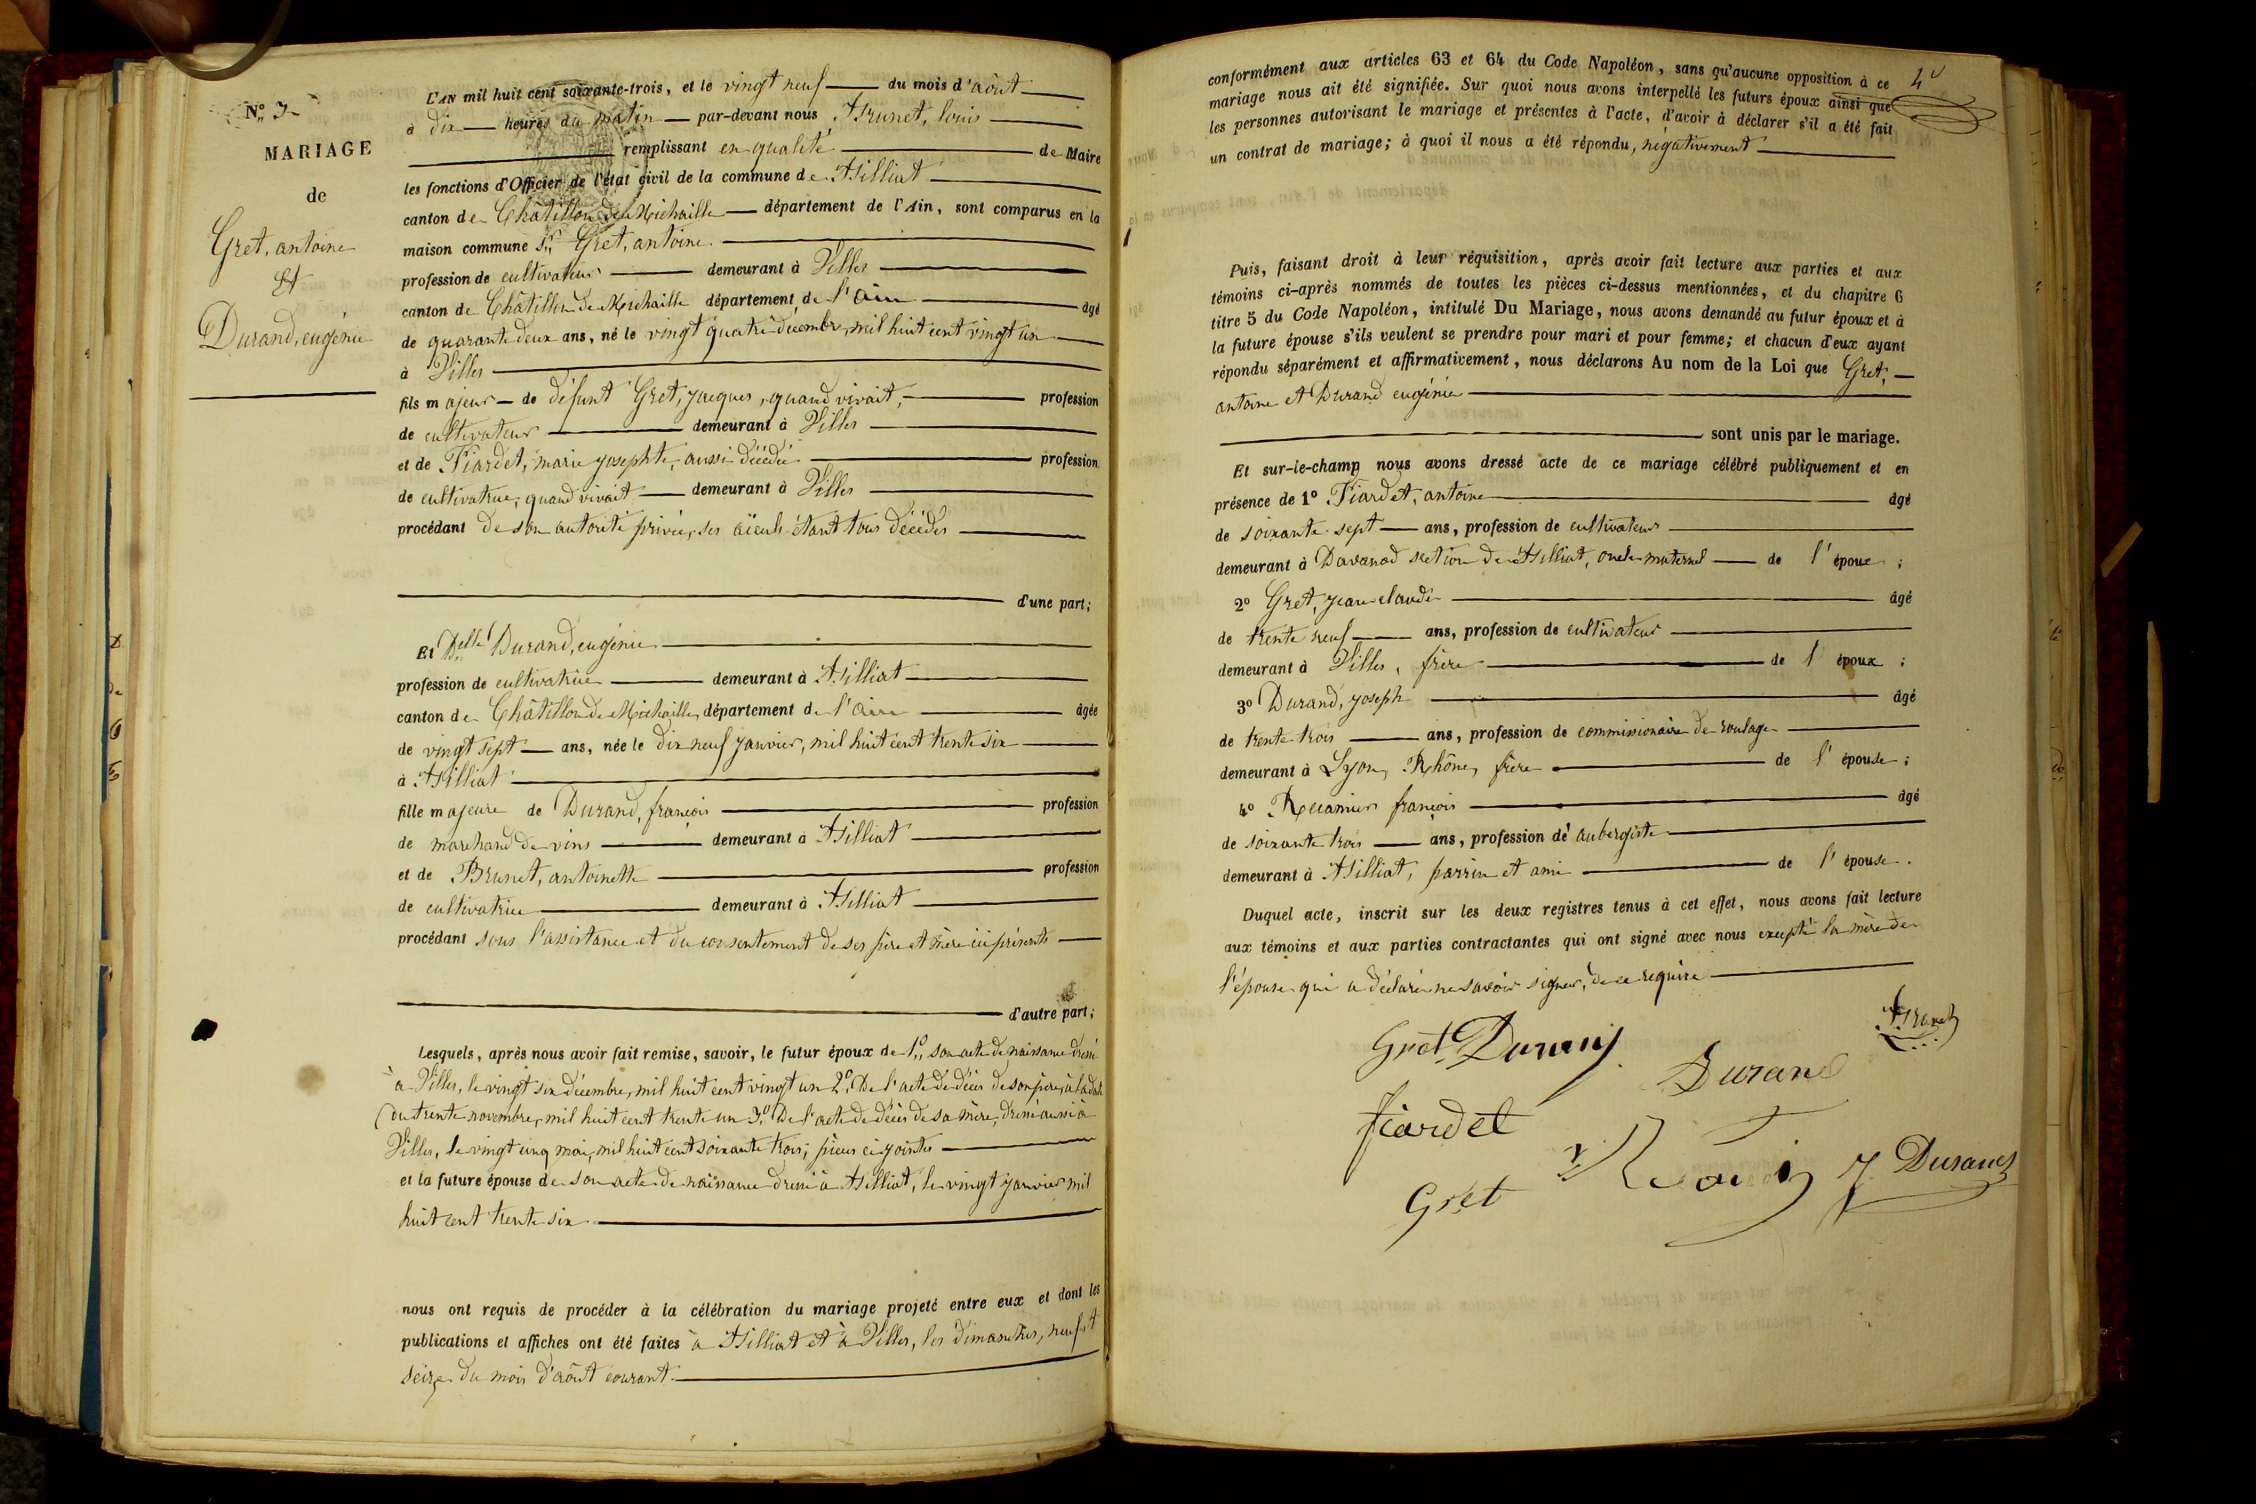 N.° 3
MARIAGE
de
Gret, antoine
Et
Durand, eugénie
L'AN mil huit cent soixante-trois, et le vingt neuf du mois d'août
à dix heures du matin par-devant nous Brunet, louis
remplissant en qualité de Maire
les fonctions d'Officier de l'état civil de la commune de Billiat
canton de Châtillon de Michaille département de l'Ain, sont comparus en la
maison commune Sr. Gret, antoine
profession de cultivateur demeurant à Villes
canton de Châtillon de Michaille département de l'ain âgé
de quarante deux ans, né le vingt quatre décembre, mil huit cent vingt un
à Villes
fils majeur de défunt Gret, jacques, quand vivait, profession
de cultivateur demeurant à Villes
et de Fiardet, marie josephte, aussi décédée profession
de cultivatrice, quand vivait demeurant à Villes
procédant de son autorité privée, ses aïeuls étant tous décédés
d'une part;
Et Delle Durand, eugénie
profession de cultivatrice demeurant à Billiat
canton de Châtillon de Michaille, département de l'ain âgée
de vingt sept ans, née le dix neuf janvier, mil huit cent trente six
à Billiat
fille majeure de Durand, françois profession
de marchand de vins demeurant à Billiat
et de Brunet, antoinette profession
de cultivatrice demeurant à Billiat
procédant sous l'assistance et du consentement de ses père et mère ici présents
d'autre part;
Lesquels, après nous avoir fait remise, savoir, le futur époux de 1.° son acte de naissance dressé
à Villes, le vingt six décembre, mil huit cent vingt un 2.° De l'acte de décès de son père, à la date
du trente novembre, mil huit cent trente un 3.° De l'acte de décès de sa mère, dressé aussi à
Villes, le vingt cinq mai, mil huit cent soixante trois; pièces ci-jointes
et la future épouse de son acte de naissance dressé à Billiat, le vingt janvier mil
huit cent trente six
nous ont requis de procéder à la célébration du mariage projeté entre eux et dont les
publications et affiches ont été faites à Billiat et à Villes, les dimanches, neuf et
seize du mois d'août courant.
4
conformément aux articles 63 et 64 du Code Napoléon, sans qu'aucune opposition à ce
mariage nous ait été signifiée. Sur quoi nous avons interpellé les futurs époux ainsi que
les personnes autorisant le mariage et présentes à l'acte, d'avoir à déclarer s'il a été fait
un contrat de mariage; à quoi il nous a été répondu, négativement
Puis, faisant droit à leur réquisition, après avoir fait lecture aux parties et aux
témoins ci-après nommés de toutes les pièces ci-dessus mentionnées, et du chapitre 6
titre 5 du Code Napoléon, intitulé Du Mariage, nous avons demandé au futur époux et à
la future épouse s'ils veulent se prendre pour mari et pour femme; et chacun d'eux ayant
répondu séparément et affirmativement, nous déclarons Au nom de la Loi que Gret,
antoine et Durand eugénie
sont unis par le mariage.
Et sur-le-champ nous avons dressé acte de ce mariage célébré publiquement et en
présence de 1° Fiardet, antoine âgé
de soixante sept ans, profession de cultivateur
demeurant à Davanod section de Billiat, oncle maternel de l'époux;
2° Gret, jean claude âgé
de trente neuf ans, profession de cultivateur
demeurant à Villes, frère de l'époux;
3° Durand, joseph âgé
de trente trois ans, profession de commissionaire de roulage
demeurant à Lyon, Rhône, frère de l'épouse;
4° Recamier françois âgé
de soixante trois ans, profession de aubergiste
demeurant à Billiat, parrin et ami de l'épouse.
Duquel acte, inscrit sur les deux registres tenus à cet effet, nous avons fait lecture
aux témoins et aux parties contractantes qui ont signé avec nous excepté la mère de
l'épouse qui a déclaré ne savoir signer, de ce requise
Brunet
Gret Durand
Durand
fiardet
Gret
J Durand